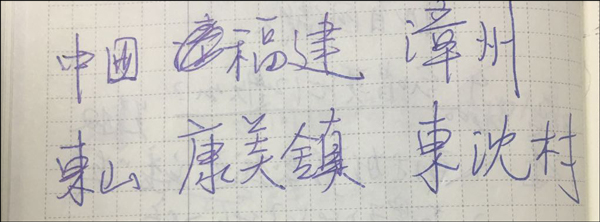 中国 福建 漳州
東山 康美鎮 東沈村